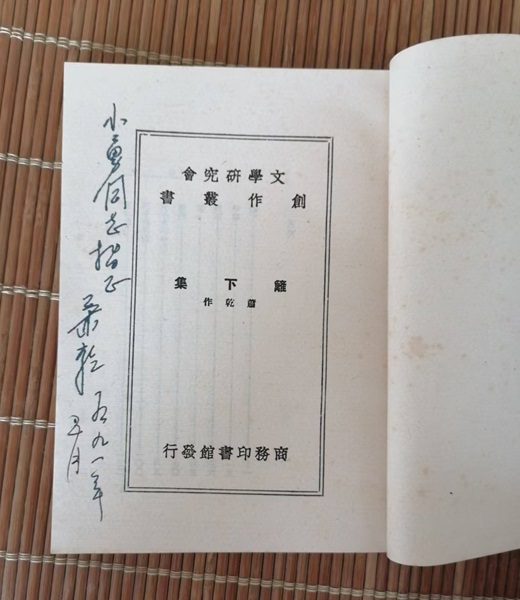 文學研究會
創作叢書
籬下集
蕭乾作
商務印書館發行
同志指正
萧乾
九一年
月